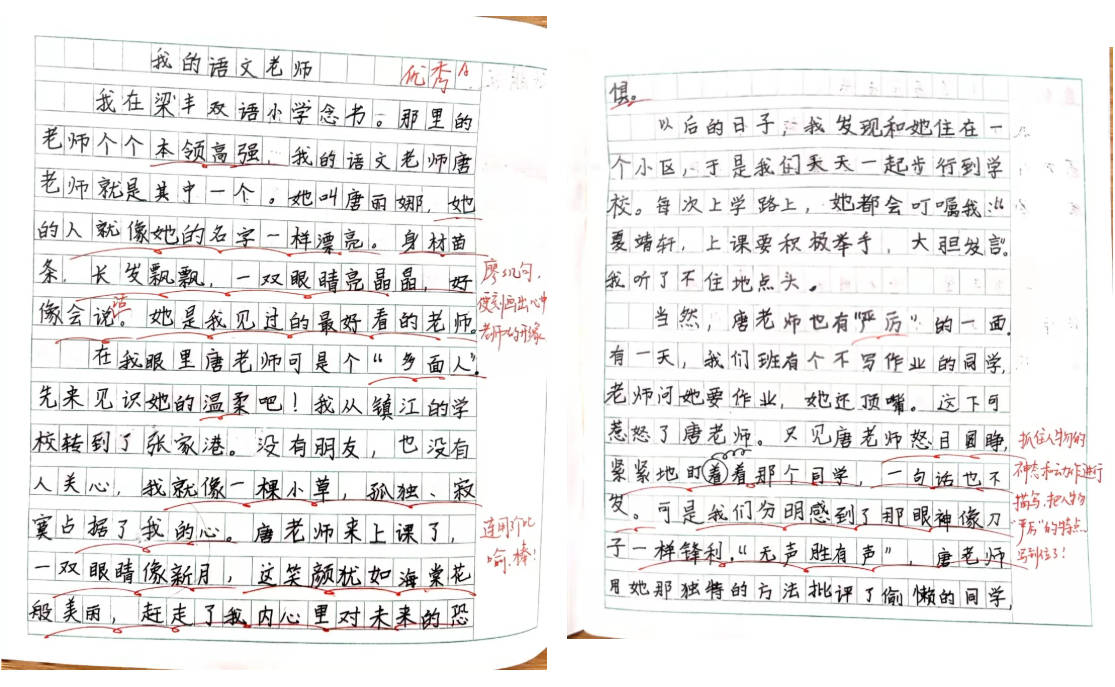 我的语文老师
优秀A
我在梁丰双语小学念书。那里的
老师个个本领高强，我的语文老师唐
老师就是其中一个。她叫唐丽娜，她
的人就像她的名字一样漂亮。身材苗
条，长发飘飘，一双眼睛亮晶晶，好
像会说话。她是我见过的最好看的老师。
在我眼里唐老师可是个“多面人”。
先来见识她的温柔吧！我从镇江的学
校转到了张家港。没有朋友，也没有
人关心，我就像一棵小草，孤独、寂
寞占据了我的心。唐老师来上课了，
一双眼睛像新月，这笑颜犹如海棠花
般美丽，赶走了我内心里对未来的恐
寥寥几句，
便刻画出心中
老师的形象
连用个比
喻，棒！
惧。
以后的日子，我发现和她住在一
个小区，于是我们天天一起步行到学
校。每次上学路上，她都会叮嘱我：“
夏靖轩，上课要积极举手，大胆发言。”
我听了不住地点头。
当然，唐老师也有“严厉”的一面。
有一天，我们班有个不写作业的同学，
老师问她要作业，她还顶嘴。这下可
惹怒了唐老师。只见唐老师怒目圆睁，
紧紧地盯着看那个同学，一句话也不
发。可是我们分明感到了那眼神像刀
子一样锋利，“无声胜有声”，唐老师
用她那独特的方法批评了偷懒的同学，
抓住人物的
神态和动作进行
描写，把人物
“严厉”的特点
写到位了！